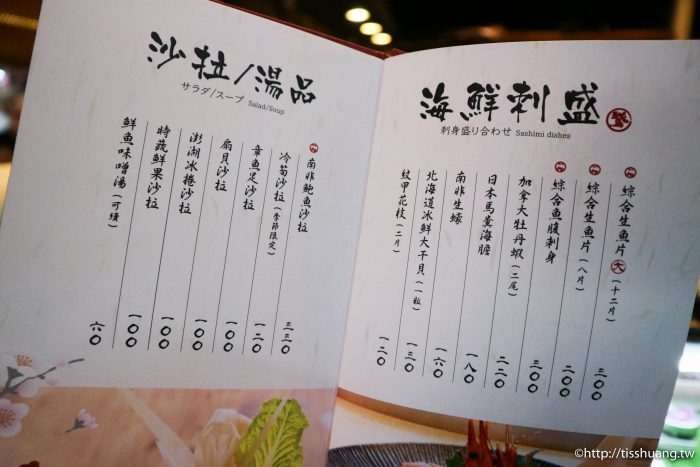 海鮮刺盛
刺身盛り合わせ Sashimi dishes
綜合生魚片 大 (十二片) 三〇〇
綜合生魚片 (八片) 二〇〇
綜合魚腹刺身 三〇〇
加拿大牡丹蝦 (二尾) 二二〇
日本馬糞海膽 一八〇
南非生蠔 一六〇
北海道冰鮮大干貝 (一粒) 一三〇
紋甲花枝 (二片) 一二〇
沙拉/湯品
サラダ/スープ Salad/Soup
南非鮑魚沙拉 三三〇
冷筍沙拉 (季節限定) 一二〇
章魚足沙拉 一〇〇
扇貝沙拉 一〇〇
澎湖冰捲沙拉 一〇〇
時蔬鮮果沙拉 一〇〇
鮮魚味噌湯 (可續) 六〇
©http://tisshuang.tw